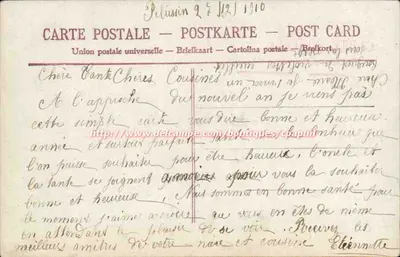 Pélussin 27/12/1910
CARTE POSTALE - POSTKARTE - POST CARD
Union postale universelle - Briefkaart - Cartolina postale - Brefkort
Chère Tante Chères Cousines
A l'approche du nouvel an je viens par
cette simple carte vous dire bonne et heureuse
http://www.delcampe.com/boutiques/
année et surtout parfaite santé le bonheur que
l'on puisse souhaiter pour être heureux, l'oncle et
la tante se joignent pour vous la souhaiter
bonne et heureuse, Nous sommes en bonne santé pour
le moment j'aime à croire que vous en êtes de même
en attendant le plaisir de se voir. Recevez les
meilleurs amitiés de votre nièce et cousine Etiennette